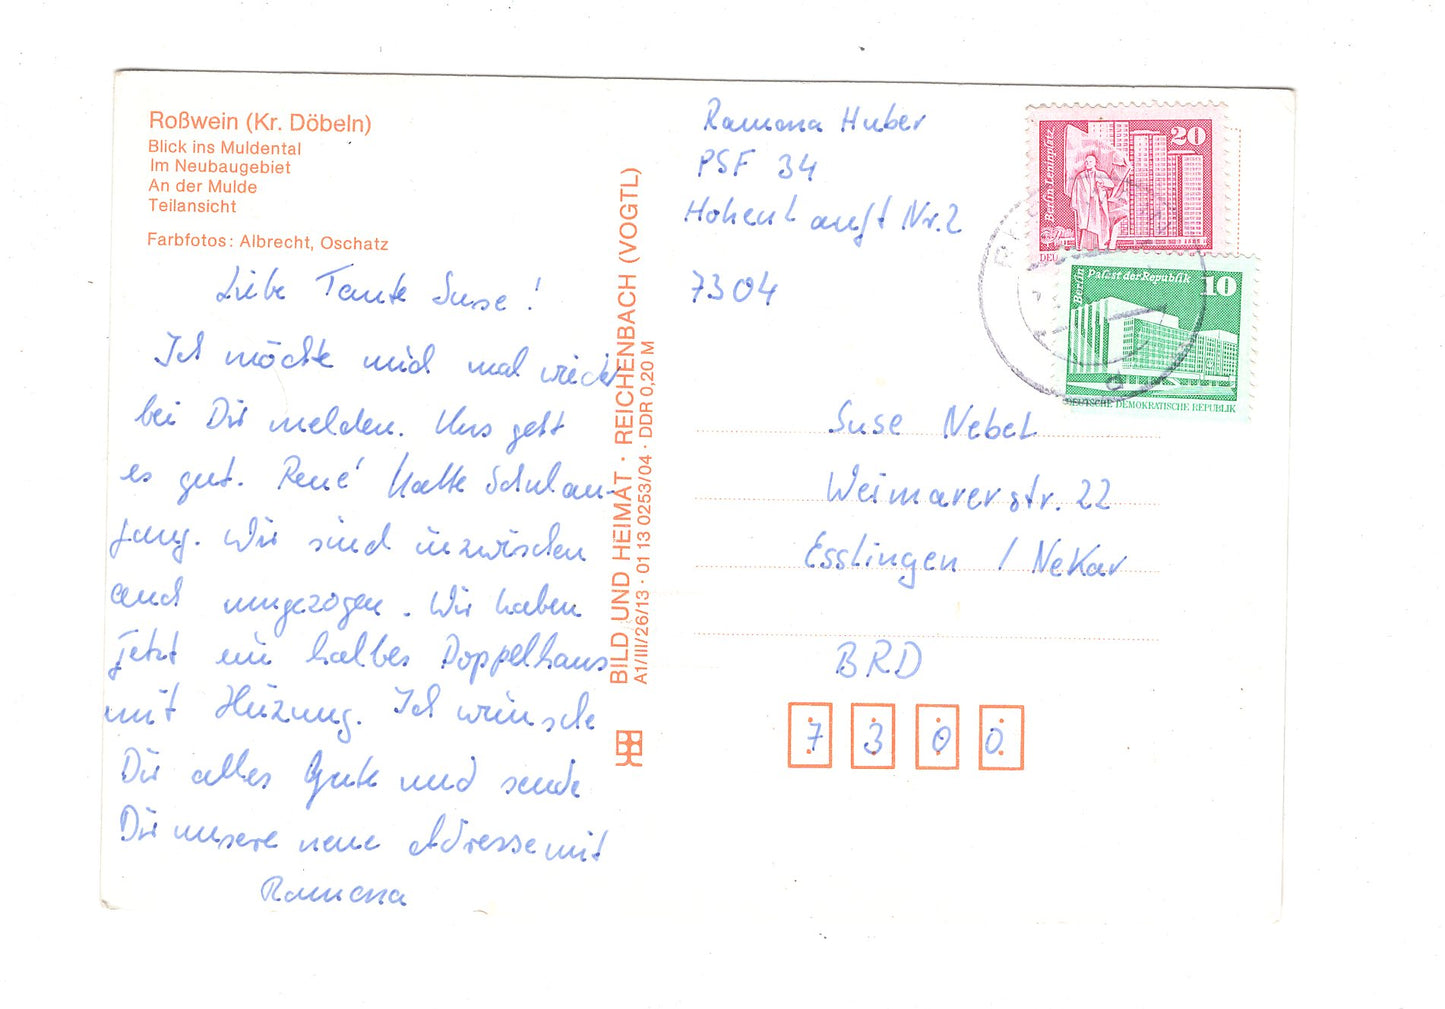 Roßwein (Kr. Döbeln)
Blick ins Muldental
Im Neubaugebiet
An der Mulde
Teilansicht
Farbfotos: Albrecht, Oschatz
Liebe Tante Suse!
Ich möchte mich mal wieder
bei Dir melden. Uns geht
es gut. René hatte Schulan-
fang. Wir sind inzwischen
auch umgezogen. Wir haben
jetzt ein halbes Doppelhaus
mit Heizung. Ich wünsche
Dir alles Gute und sende
Dir unsere neue Adresse mit
Ramona
BILD UND HEIMAT · REICHENBACH (VOGTL)
A1/III/26/13 · 01 13 0253/04 · DDR 0,20 M
Ramona Huber
PSF 34
Hohenlauft Nr. 2
7304
Berlin Leninplatz
20
DEU
Berlin Palast der Republik
10
DEUTSCHE DEMOKRATISCHE REPUBLIK
Suse Nebel
Weimarerstr. 22
Esslingen / Nekar
BRD
7 3 0 0